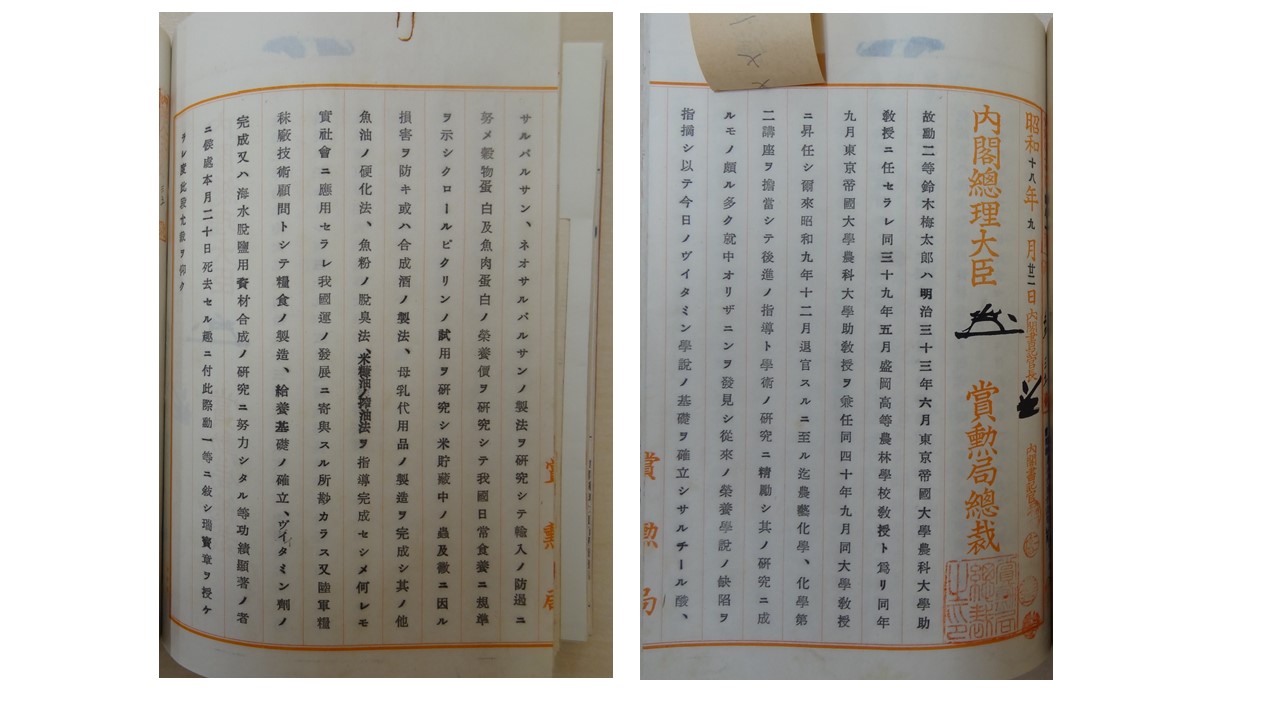 昭和十八年九月廿二日 内閣書記官長
内閣總理大臣 賞勲局總裁
故勲二等鈴木梅太郎ハ明治三十三年六月東京帝國大學農科大學助
敎授ニ任セラレ同三十九年五月盛岡高等農林學校敎授ト爲リ同年
九月東京帝國大學農科大學助敎授ヲ兼任同四十年九月同大學敎授
ニ昇任シ爾來昭和九年十二月退官スルニ至ル迄農藝化學、化學第
二講座ヲ擔當シテ後進ノ指導ト學術ノ硏究ニ精勵シ其ノ硏究ニ成
ルモノ頗ル多ク就中オリザニンヲ發見シ從來ノ榮養學說ノ缺陷ヲ
指摘シ以テ今日ノヴイタミン學說ノ基礎ヲ確立シサルチール酸、
賞勲局
サルバルサン、ネオサルバルサンノ製法ヲ硏究シテ輸入ノ防遏ニ
努メ穀物蛋白及魚肉蛋白ノ榮養價ヲ硏究シテ我國日常食養ニ規準
ヲ示シクロールピクリンノ試用ヲ硏究シ米貯藏中ノ蟲及黴ニ因ル
損害ヲ防キ或ハ合成酒ノ製法、母乳代用品ノ製造ヲ完成シ其ノ他
魚油ノ硬化法、魚粉ノ脫臭法、米糠油ノ搾油法ヲ指導完成セシメ何レモ
實社會ニ應用セラレ我國運ノ發展ニ寄與スル所尠カラス又陸軍糧
秣廠技術顧問トシテ糧食ノ製造、給養基礎ノ確立、ヴイタミン劑ノ
完成又ハ海水脫鹽用資材合成ノ硏究ニ努力シタル等功績顯著ノ者
ニ候處本月二十日死去セル趣ニ付此際勲一等ニ敍シ瑞寶章ヲ授ケ
ラレ度此段允裁ヲ仰ク
賞勲局